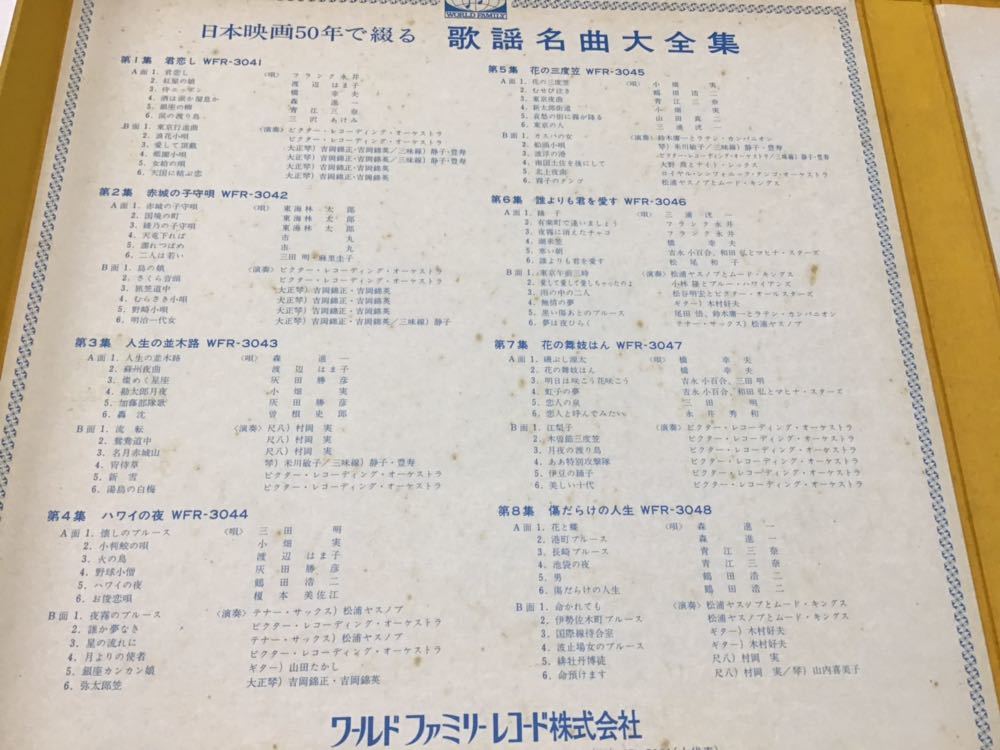 WORLD FAMILY
日本映画50年で綴る 歌謡名曲大全集
第1集 君恋し WFR-3041
A面 1. 君恋し 〈唄〉 フランク永井
2. 紅屋の娘 渡辺はま子
3. 侍ニッポン 橋幸夫
4. 酒は涙か溜息か 森進一
5. 銀座の柳 青江三奈
6. 涙の渡り鳥 三沢あけみ
B面 1. 東京行進曲 〈演奏〉 ビクター・レコーディング・オーケストラ
2. 浪花小唄 ビクター・レコーディング・オーケストラ
3. 愛して頂戴 大正琴)吉岡錦正・吉岡錦英/三味線)静子・豊寿
4. 祇園小唄 大正琴)吉岡錦正・吉岡錦英/三味線)静子・豊寿
5. 女給の唄 大正琴)吉岡錦正・吉岡錦英
6. 天国に結ぶ恋 大正琴)吉岡錦正・吉岡錦英
第2集 赤城の子守唄 WFR-3042
A面 1. 赤城の子守唄 〈唄〉 東海林太郎
2. 国境の町 東海林太郎
3. 綾乃の子守唄 東海林太郎
4. 天竜下れば 市丸
5. 濡れつばめ 市丸
6. 二人は若い 三田明・麻里圭子
B面 1. 島の娘 〈演奏〉 ビクター・レコーディング・オーケストラ
2. さくら音頭 ビクター・レコーディング・オーケストラ
3. 旅笠道中 大正琴)吉岡錦正・吉岡錦英
4. むらさき小唄 大正琴)吉岡錦正・吉岡錦英
5. 野崎小唄 大正琴)吉岡錦正・吉岡錦英
6. 明治一代女 大正琴)吉岡錦正・吉岡錦英/三味線)静子
第3集 人生の並木路 WFR-3043
A面 1. 人生の並木路 〈唄〉 森進一
2. 蘇州夜曲 渡辺はま子
3. 燦めく星座 灰田勝彦
4. 勘太郎月夜 小畑実
5. 加藤部隊歌 灰田勝彦
6. 轟沈 曽根史郎
B面 1. 流転 〈演奏〉 尺八)村岡実
2. 鴛鴦道中 尺八)村岡実
3. 名月赤城山 尺八)村岡実
4. 宵待草 琴)米川敏子/三味線)静子・豊寿
5. 新雪 ビクター・レコーディング・オーケストラ
6. 湯島の白梅 ビクター・レコーディング・オーケストラ
第4集 ハワイの夜 WFR-3044
A面 1. 懐しのブルース 〈唄〉 三田明
2. 小判鮫の唄 小畑実
3. 火の鳥 渡辺はま子
4. 野球小僧 灰田勝彦
5. ハワイの夜 鶴田浩二
6. お俊恋唄 榎本美佐江
B面 1. 夜霧のブルース 〈演奏〉 テナー・サックス)松浦ヤスノブ
2. 誰か夢なき ビクター・レコーディング・オーケストラ
3. 星の流れに テナー・サックス)松浦ヤスノブ
4. 月よりの使者 ビクター・レコーディング・オーケストラ
5. 銀座カンカン娘 ギター)山田たかし
6. 弥太郎笠 大正琴)吉岡錦正・吉岡錦英
第5集 花の三度笠 WFR-3045
A面 1. 花の三度笠 〈唄〉 小畑実
2. むせび泣き 鶴田浩二
3. 東京夜曲 青江三奈
4. 新太郎街道 小畑実
5. 哀愁の街に霧が降る 山田真二
6. 東京の人 三浦洸一
B面 1. カスバの女 〈演奏〉 鈴木庸一とラテン・カンパニオン
2. 船頭小唄 琴)米川敏子/三味線)静子・豊寿
3. 波浮の港 ビクター・レコーディング・オーケストラ/三味線)静子・豊寿
4. 南国土佐を後にして 大野喬とナイト・レックス
5. 北上夜曲 ロイヤル・シンフォニック・タンゴ・オーケストラ
6. 霧子のタンゴ 松浦ヤスノブとムード・キングス
第6集 誰よりも君を愛す WFR-3046
A面 1. 踊子 〈唄〉 三浦洸一
2. 有楽町で逢いましょう フランク永井
3. 夜霧に消えたチャコ フランク永井
4. 潮来笠 橋幸夫
5. 寒い朝 吉永小百合、和田弘とマヒナ・スターズ
6. 誰よりも君を愛す 松尾和子
B面 1. 東京午前三時 〈演奏〉 松浦ヤスノブとムード・キングス
2. 愛して愛して愛しちゃったのよ 小林隆とブルー・ハワイアンズ
3. 雨の中の二人 松谷明宏とビクター・オールスターズ
4. 無情の夢 ギター)木村好夫
5. 黒い傷あとのブルース 尾田悟、鈴木庸一とラテン・カンパニオン
6. 夢は夜ひらく テナー・サックス)松浦ヤスノブ
第7集 花の舞妓はん WFR-3047
A面 1. 磯ぶし源太 〈唄〉 橋幸夫
2. 花の舞妓はん 橋幸夫
3. 明日は咲こう花咲こう 吉永小百合、三田明
4. 虹子の夢 吉永小百合、和田弘とマヒナ・スターズ
5. 恋人の泉 三田明
6. 恋人と呼んでみたい 永井秀和
B面 1. 江梨子 〈演奏〉 ビクター・レコーディング・オーケストラ
2. 木曽節三度笠 ビクター・レコーディング・オーケストラ
3. 月夜の渡り鳥 ビクター・レコーディング・オーケストラ
4. ああ特別攻撃隊 ビクター・レコーディング・オーケストラ
5. 伊豆の踊子 ビクター・レコーディング・オーケストラ
6. 美しい十代 ビクター・レコーディング・オーケストラ
第8集 傷だらけの人生 WFR-3048
A面 1. 花と蝶 〈唄〉 森進一
2. 港町ブルース 森進一
3. 長崎ブルース 青江三奈
4. 池袋の夜 青江三奈
5. 男 鶴田浩二
6. 傷だらけの人生 鶴田浩二
B面 1. 命かれても 〈演奏〉 松浦ヤスノブとムード・キングス
2. 伊勢佐木町ブルース 松浦ヤスノブとムード・キングス
3. 国際線待合室 ギター)木村好夫
4. 波止場女のブルース ギター)木村好夫
5. 緋牡丹博徒 尺八)村岡実
6. 命預けます 尺八)村岡実/琴)山内喜美子
ワールドファミリーレコード株式会社